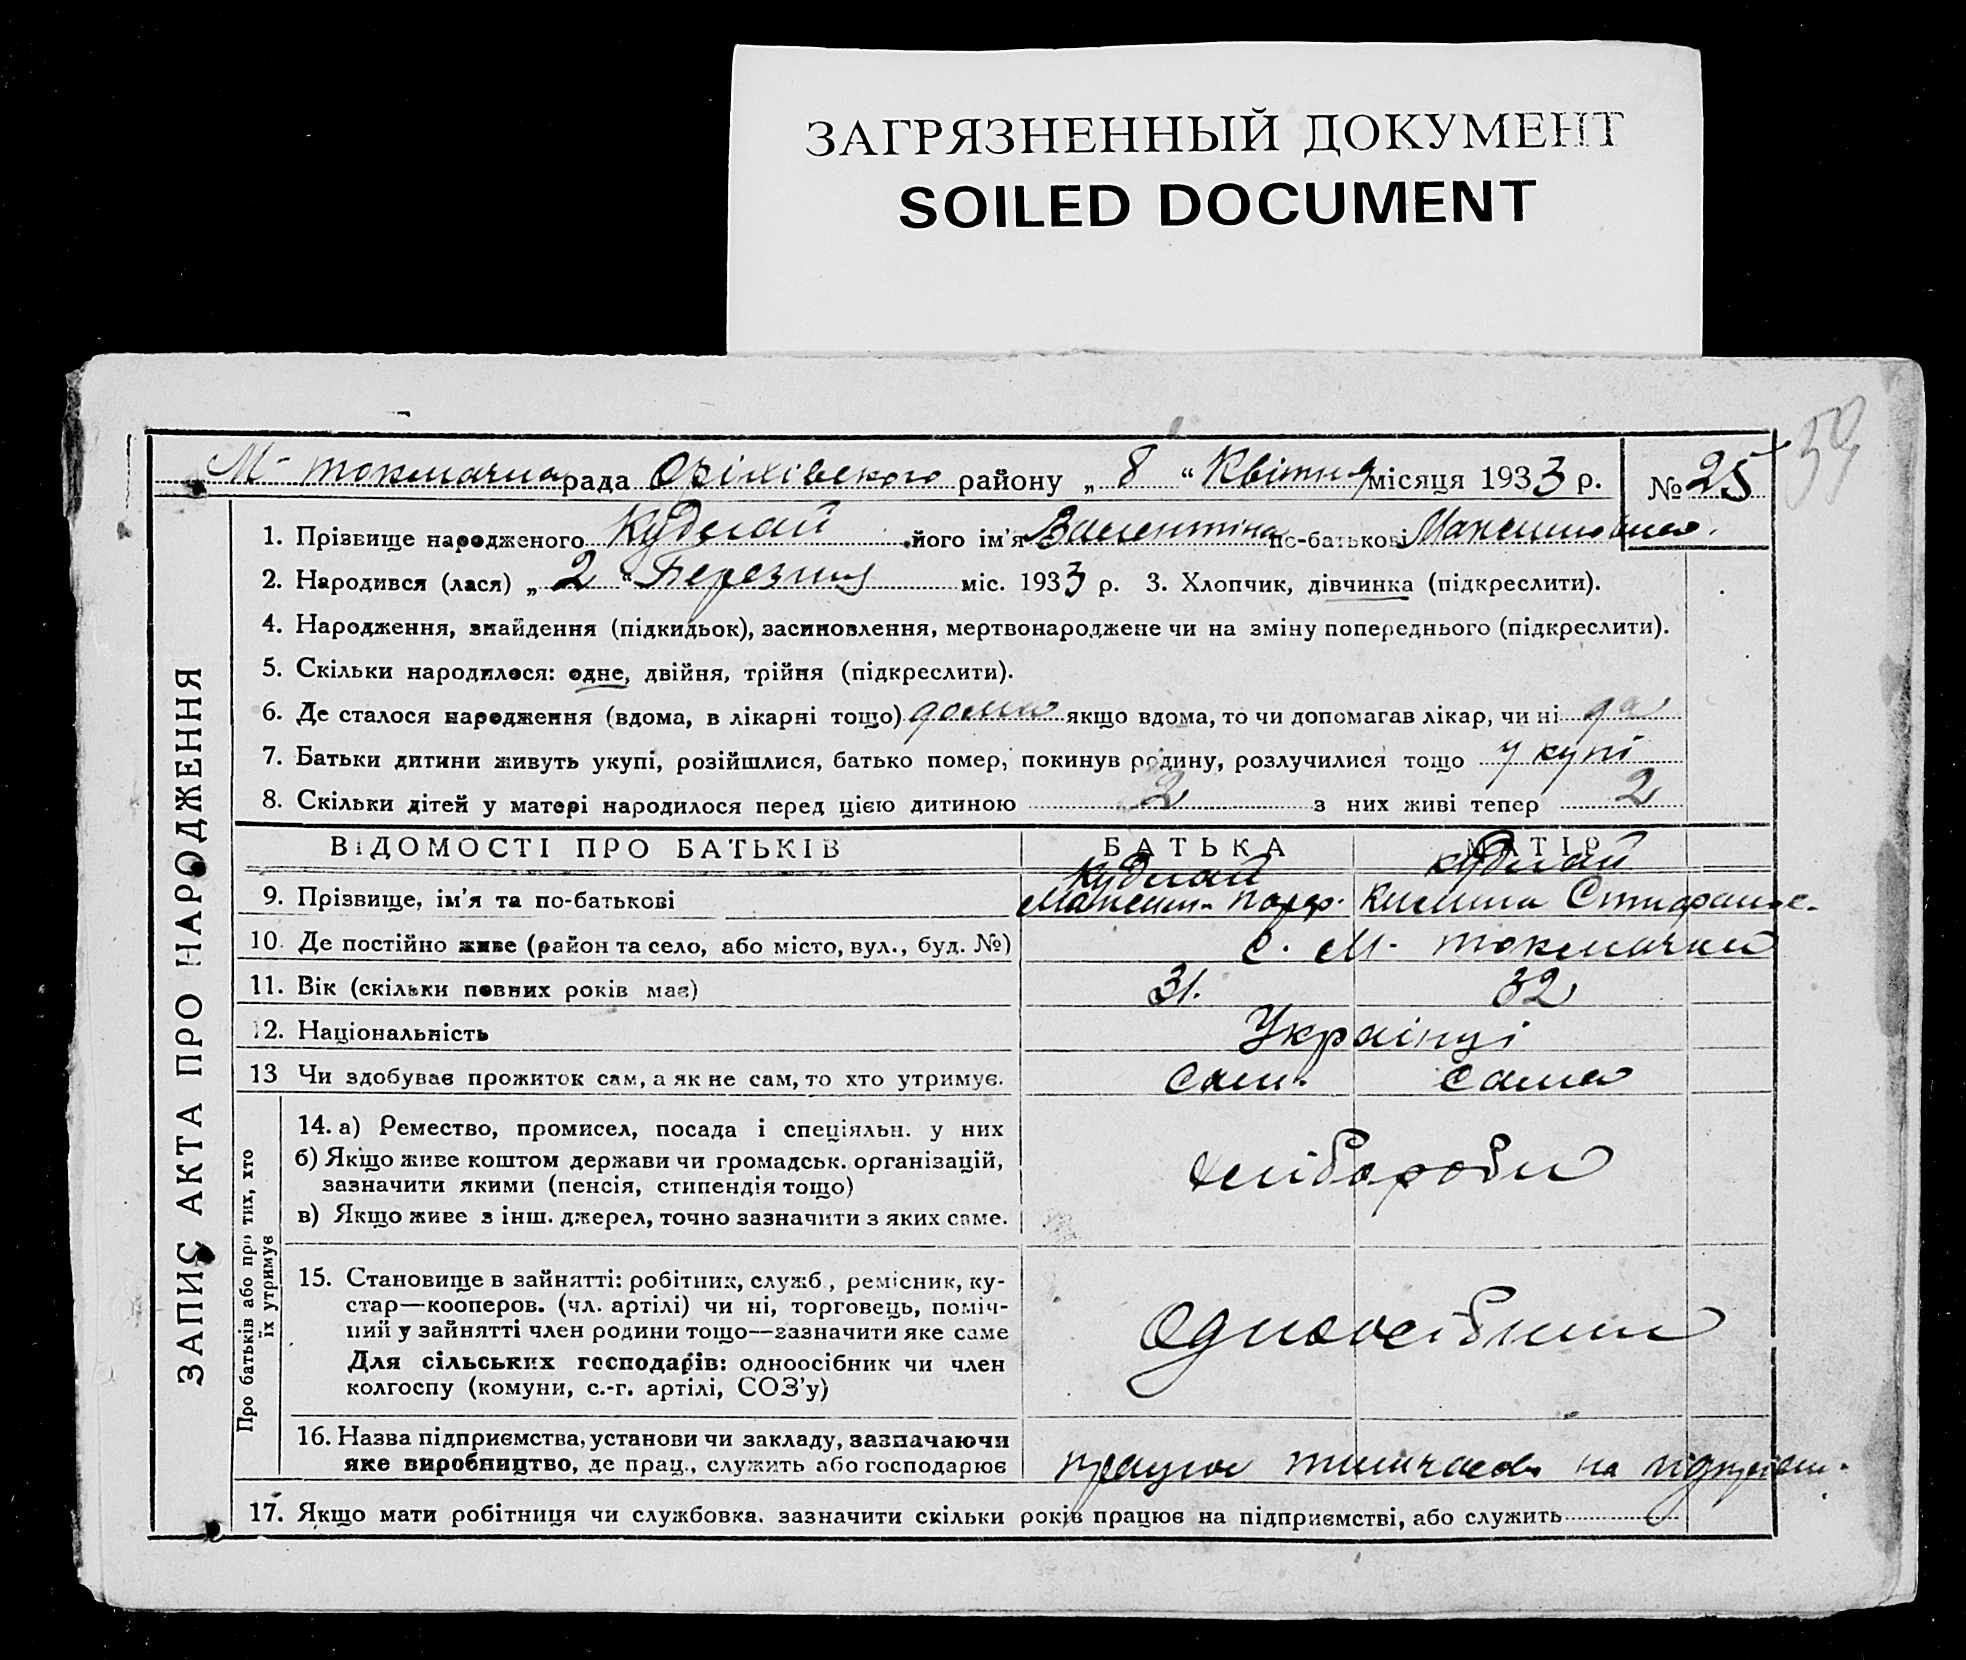 ЗАГРЯЗНЕННЫЙ ДОКУМЕНТ
SOILED DOCUMENT
59
М- токмачна рада Оріхівского району „ 8 “ Квітня місяця 1933 р. № 25
ЗАПИС АКТА ПРО НАРОДЖЕННЯ
1. Прізвище народженого Кудлай його ім'я Валентіна по-батькові Максимовна.
2. Народився (лася) „ 2 “ Березня міс. 1933 р. 3. Хлопчик, дівчинка (підкреслити).
4. Народження, знайдення (підкидьок), засиновлення, мертвонароджене чи на зміну попереднього (підкреслити).
5. Скільки народилося: одне, двійня, трійня (підкреслити).
6. Де сталося народження (вдома, в лікарні тощо) дома якщо вдома, то чи допомагав лікар, чи ні да
7. Батьки дитини живуть укупі, розійшлися, батько помер, покинув родину, розлучилися тощо у купі
8. Скільки дітей у матері народилося перед цією дитиною 2 з них живі тепер 2
ВІДОМОСТІ ПРО БАТЬКІВ БАТЬКА МАТІР
Кудлай Кудлай
9. Прізвище, ім'я та по-батькові Максим
10. Де постійно живе (район та село, або місто, вул., буд. №) с. М- токмачки
11. Вік (скільки повних років має) 31. 32
12. Національність Українці
13 Чи здобуває прожиток сам, а як не сам, то хто утримує. Сам. Сама
Про батьків або про тих, хто
їх утримує
14. а) Ремество, промисел, посада і спеціяльн. у них
б) Якщо живе коштом держави чи громадськ. організацій,
зазначити якими (пенсія, стипендія тощо) хлібороби
в) Якщо живе з інш. джерел, точно зазначити з яких саме.
15. Становище в зайнятті: робітник, служб., ремісник, ку-
стар—кооперов. (чл. артілі) чи ні, торговець, поміч-
ний у зайнятті член родини тощо—зазначити яке саме
Одноосібники
Для сільських господарів: одноосібник чи член
колгоспу (комуни, с.-г. артілі, СОЗ'у)
16. Назва підприємства, установи чи закладу, зазначаючи
яке виробництво, де прац., служить або господарює працює тимчасово на
17. Якщо мати робітниця чи службовка. зазначити скільки років працює на підприємстві, або служить